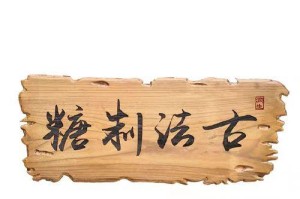 古法制糖